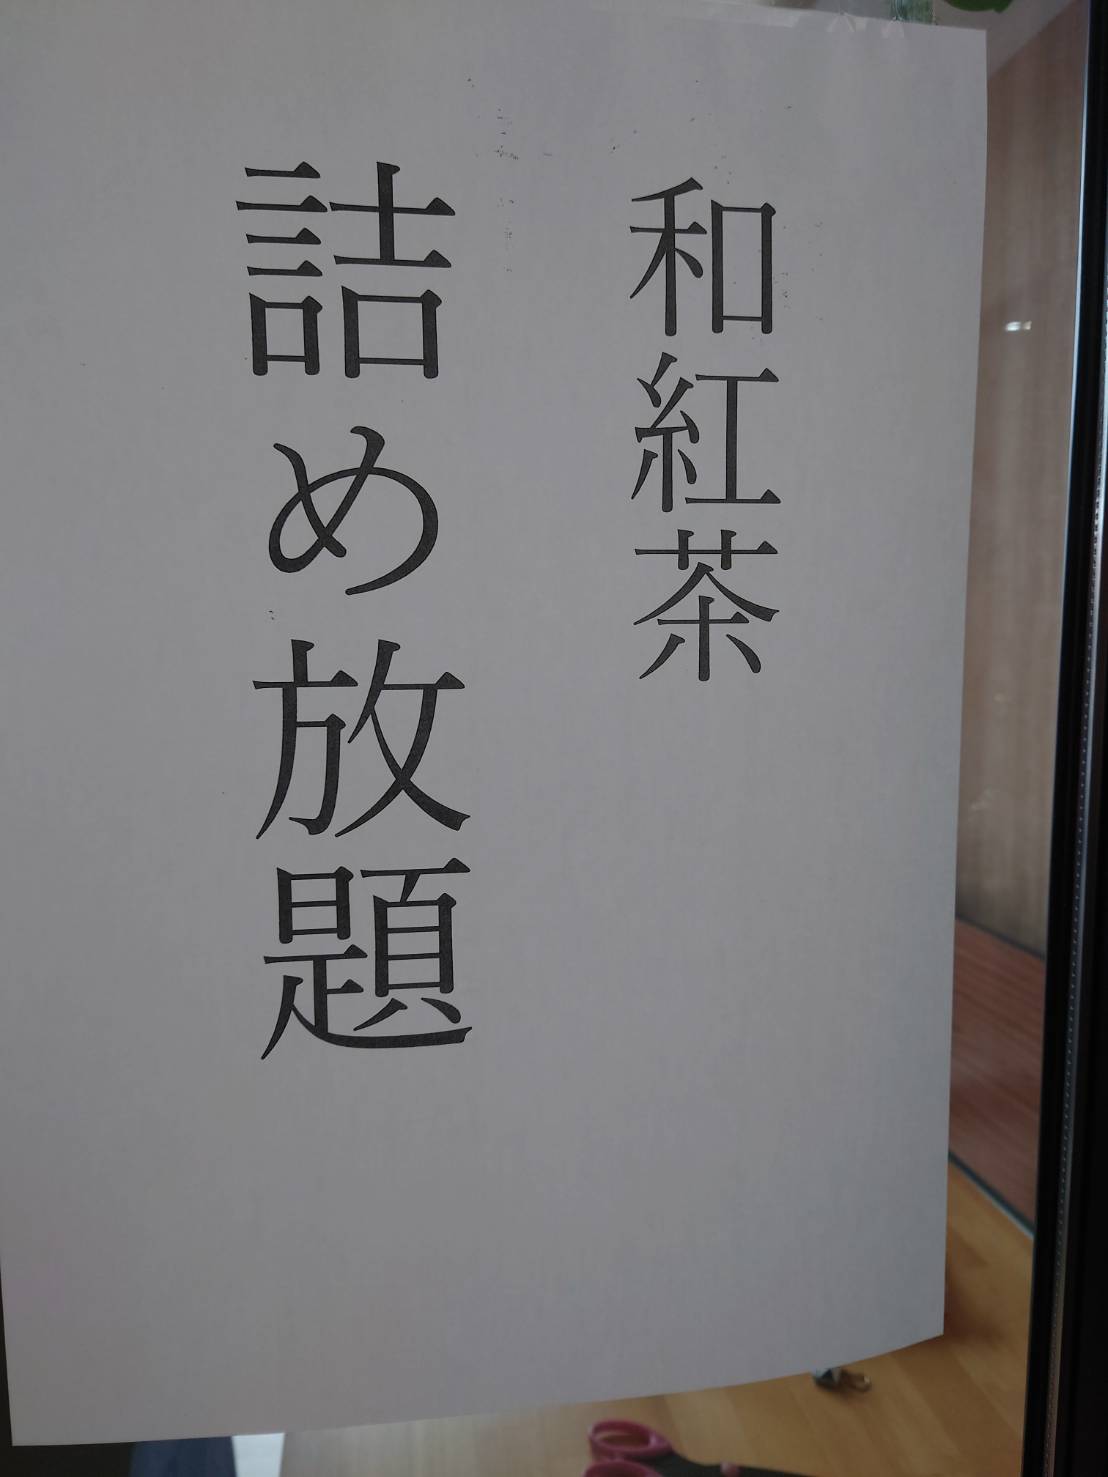 和紅茶
詰め放題